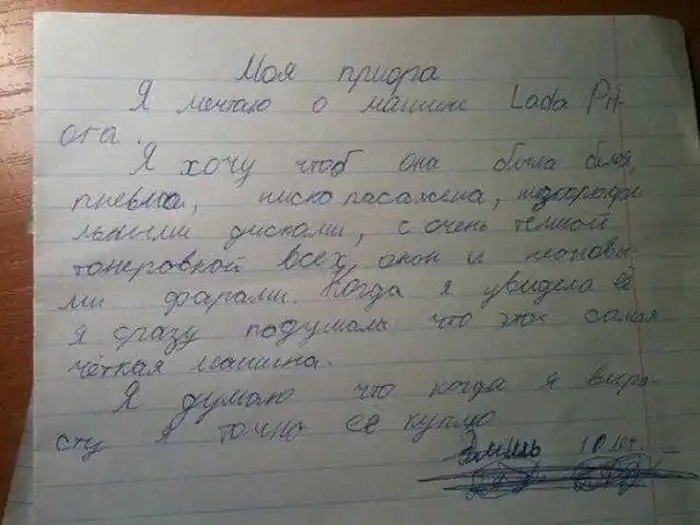 Моя приора
Я мечтаю о машине Lada Pri-
ora.
Я хочу чтоб она была белой,
пневма, ниско пасажена, низкопрофи
льными дисками, с очень тёмной
танеровкой всех окон и неоновы-
ми фарами. Когда я увидела её
я сразу подумала что это самая
чёткая машина.
Я думаю что когда я выра-
сту я точно её куплю
Эмиль 10 лет.